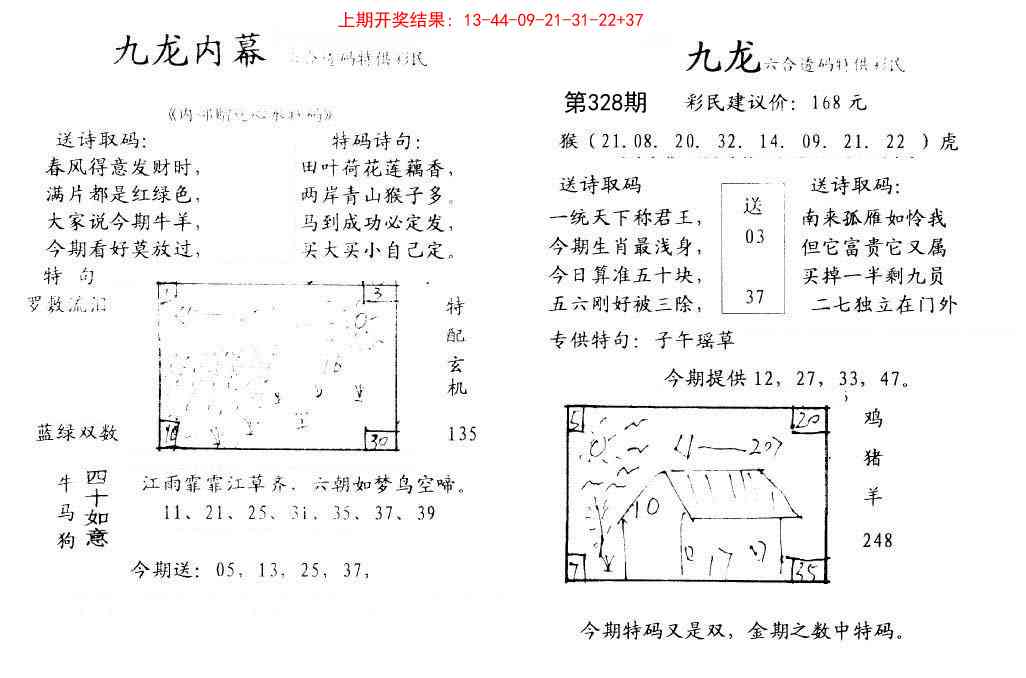 上期开奖结果：13-44-09-21-31-22+37
九龙内幕
送诗取码：
春风得意发财时，
满片都是红绿色，
大家说今期牛羊，
今期看好莫放过，
特码诗句：
田叶荷花莲藕香，
两岸青山猴子多。
马到成功必定发，
买大买小自己定。
特 句
1
3
30
特
配
玄
机
135
蓝绿双数
牛
马
狗
四十如意
江雨霏霏江草齐．六朝如梦鸟空啼。
11、21、25、31、35、37、39
今期送：05，13，25，37，
九龙六合透码特供彩民
第328期
彩民建议价：168元
猴（21.08．20．32．14．09．21．22 ）虎
送诗取码
一统天下称君王，
今期生肖最浅身，
今日算准五十块，
五六刚好被三除，
送
03
37
送诗取码：
南来孤雁如怜我
但它富贵它又属
买掉一半剩九员
二七独立在门外
专供特句：子午瑶草
今期提供12，27，33，47。
5
20
10
7
35
鸡
猪
羊
248
今期特码又是双，金期之数中特码。